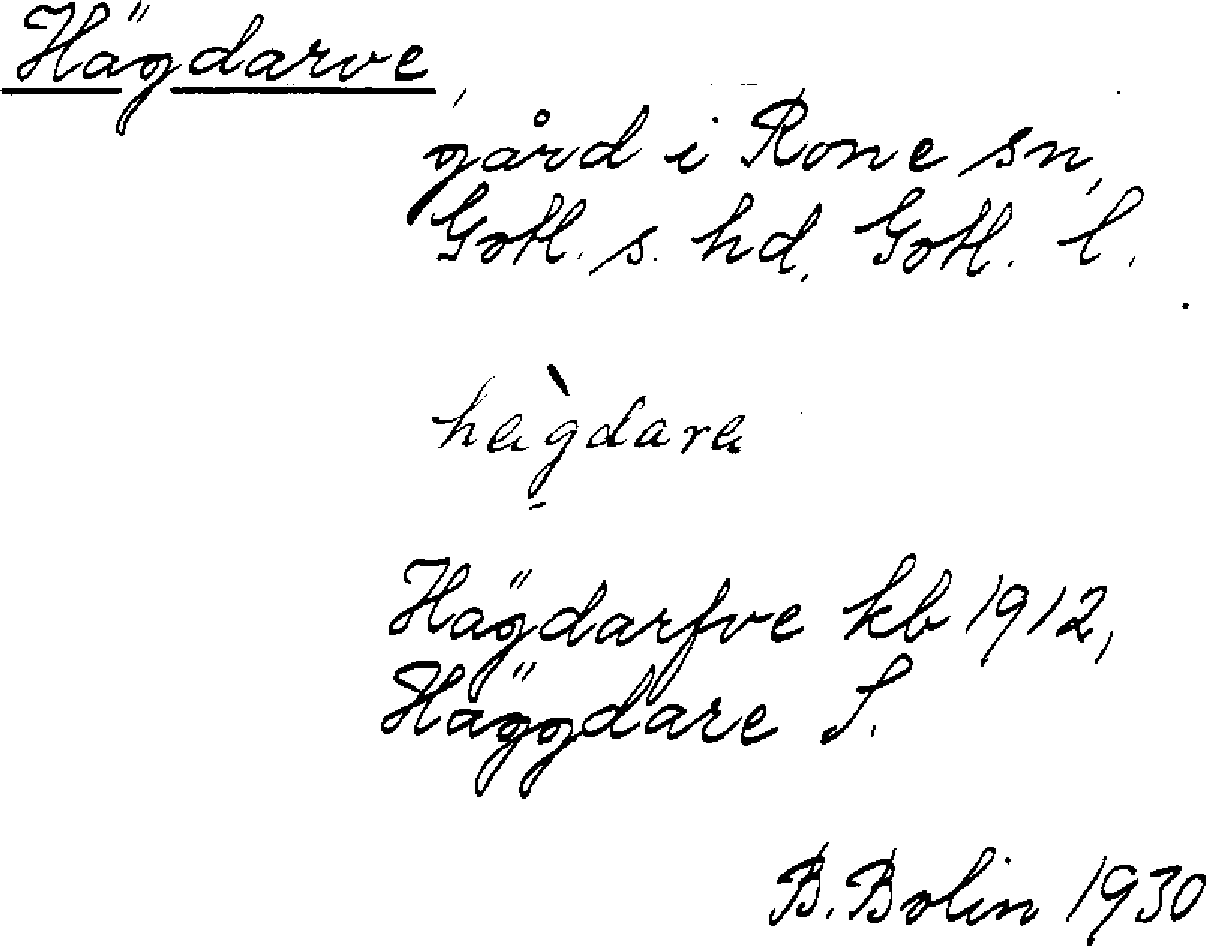 Hägdarve,
gård i Rone sn,
Gotl. s. hd. Gotl. l.
hägdara
Hägdarfve kb 1912,
Häggdare S.
B. Bolin 1930